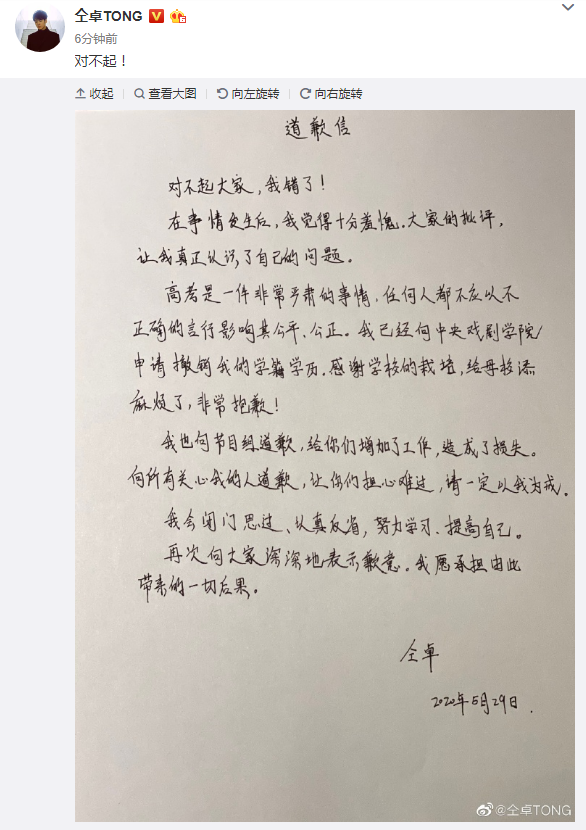 仝卓TONG
6分钟前
对不起！
收起 查看大图 向左旋转 向右旋转
道歉信
对不起大家，我错了！
在事情发生后，我觉得十分羞愧。大家的批评，
让我真正认识了自己的问题。
高考是一件非常严肃的事情，任何人都不应以不
正确的言行影响其公平、公正。我已经向中央戏剧学院
申请撤销我的学籍学历。感谢学校的栽培，给母校添
麻烦了，非常抱歉！
我也向节目组道歉，给你们增加了工作，造成了损失。
向所有关心我的人道歉，让你们担心难过，请一定以我为戒。
我会闭门思过、认真反省，努力学习、提高自己。
再次向大家深深地表示歉意。我愿承担由此
带来的一切后果。
仝卓
2020年5月29日.
@仝卓TONG